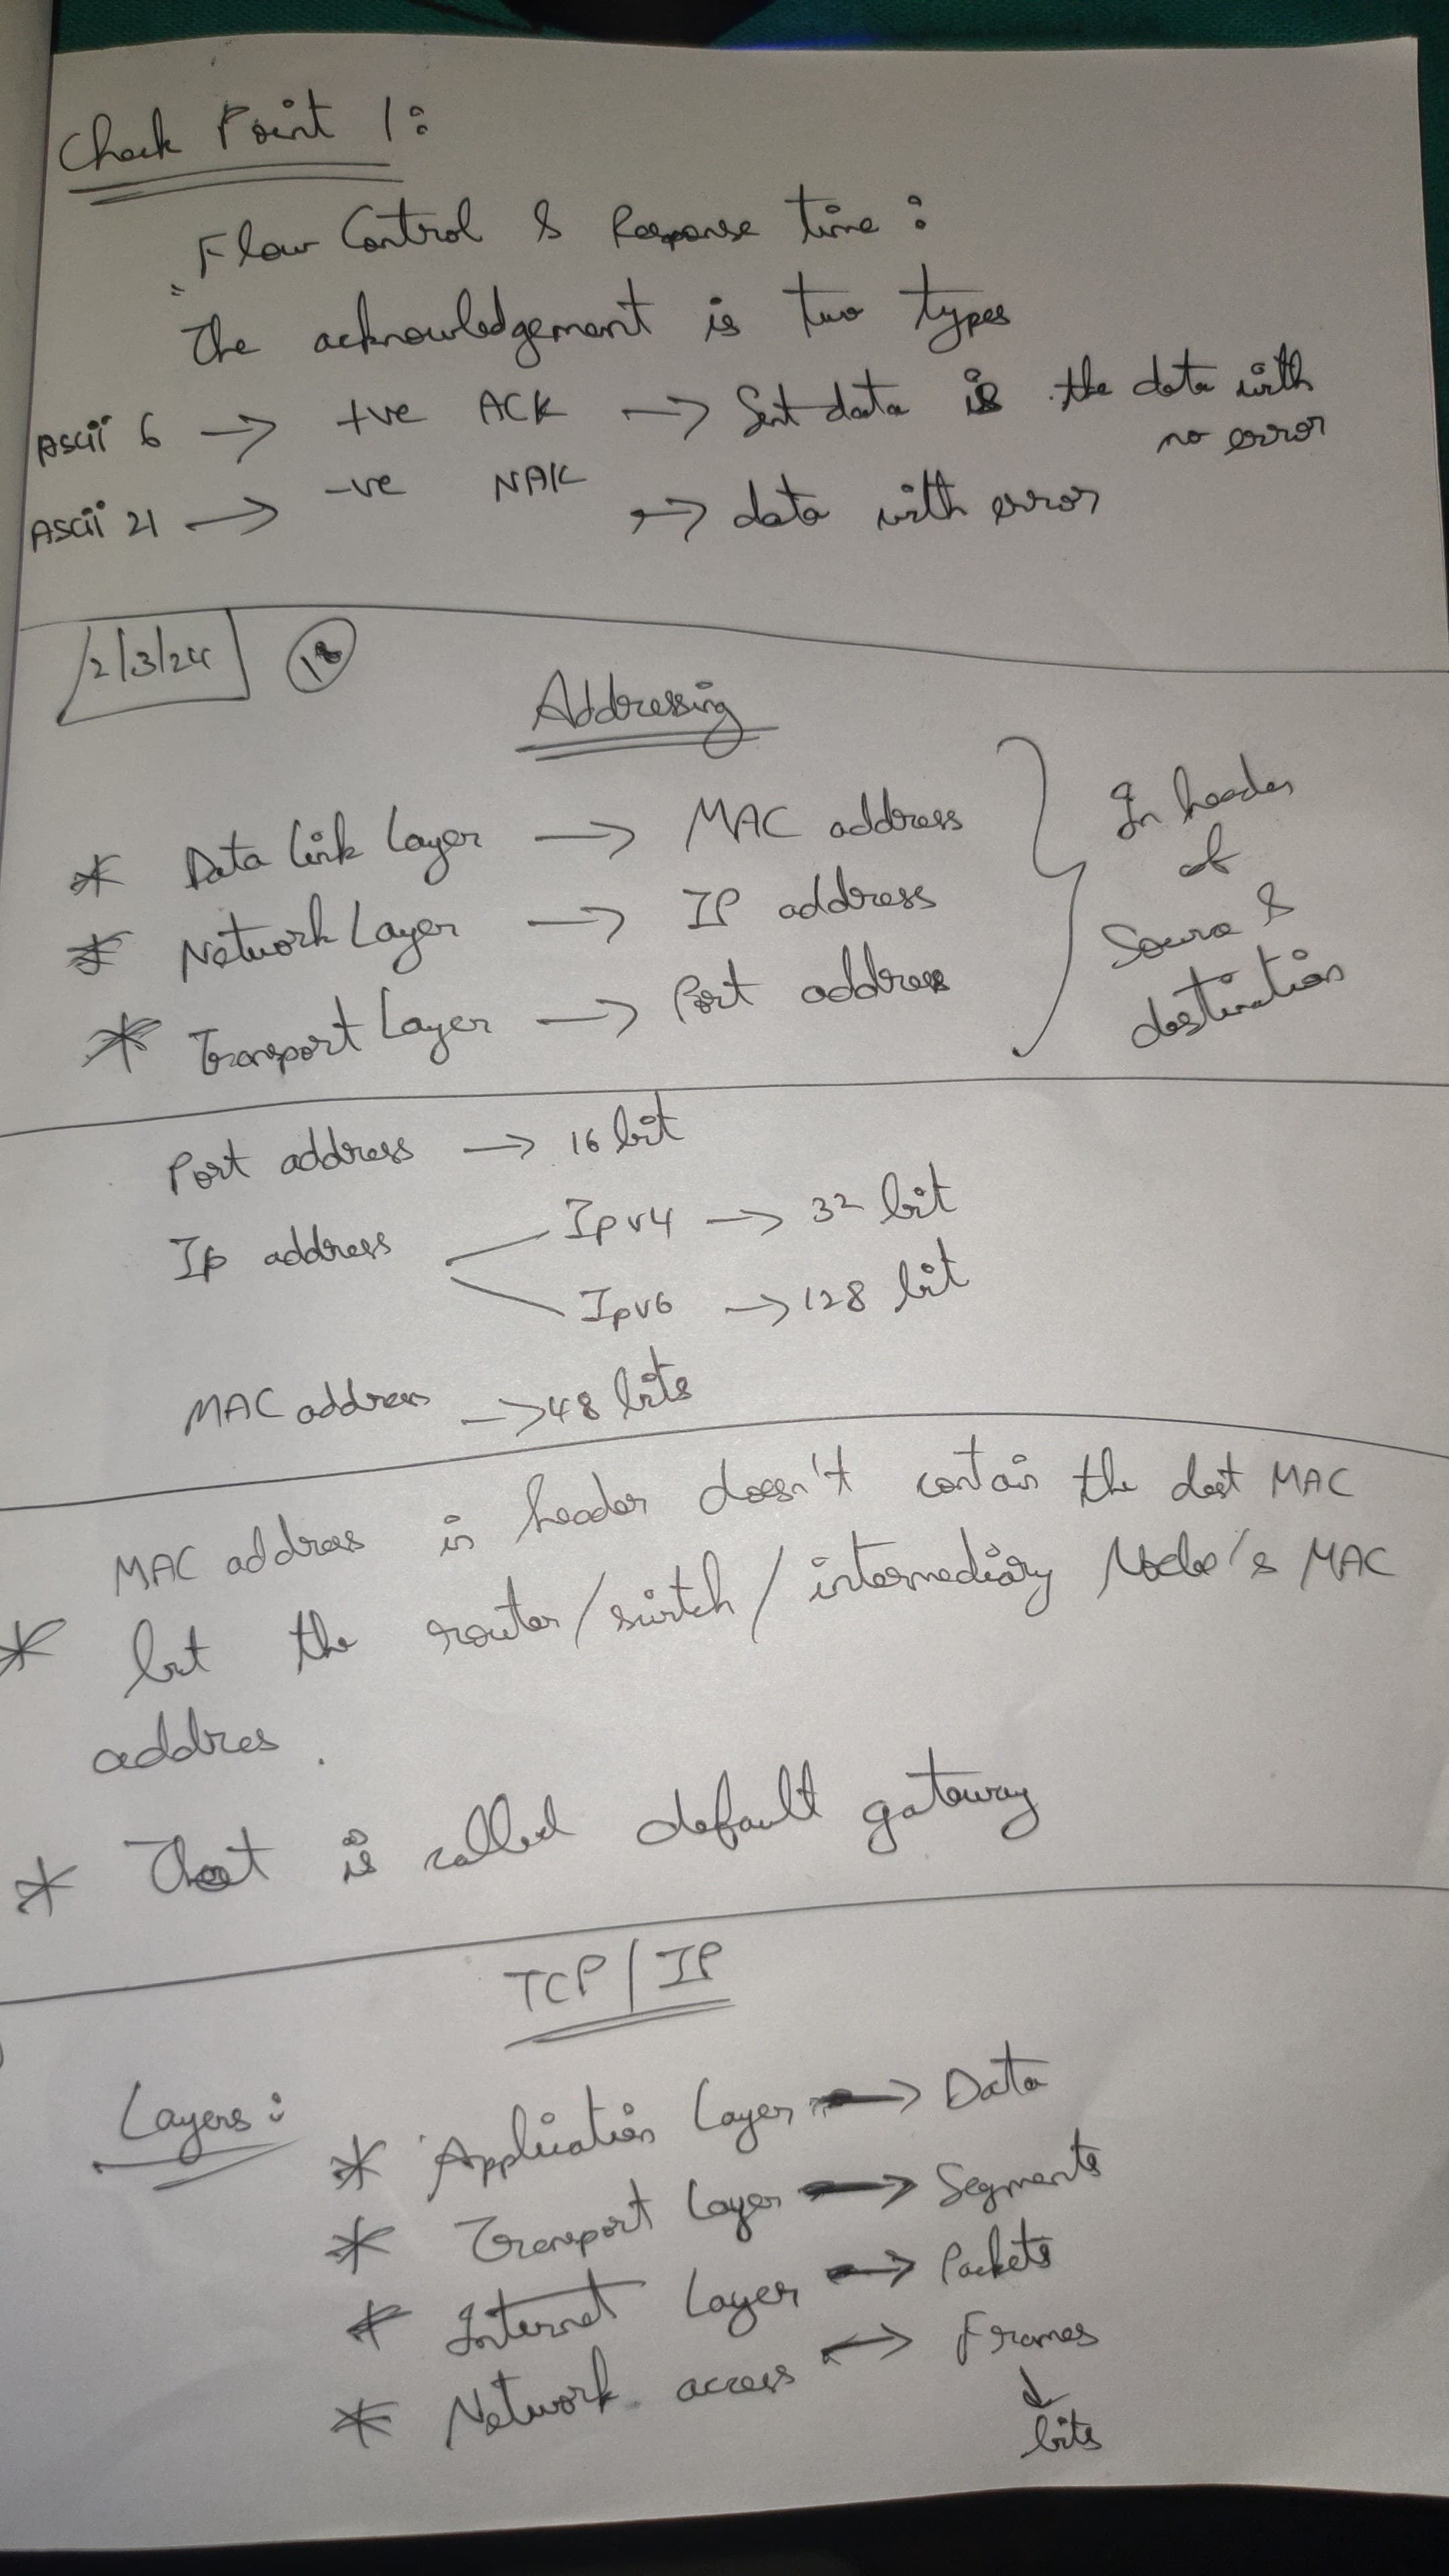 Check Point 1:
Flow Control & Response time:
The acknowledgement is two types
Ascii 6 → +ve ACK → Sent data is the data with
no error
Ascii 21 → -ve NAK → data with error
12/3/24
Addressing
* Data link layer → MAC address
* Network Layer → IP address
* Transport Layer → Port address
In header
of
Source &
destination
Port address → 16 bit
Ip address
Ipv4 → 32 bit
Ipv6 → 128 bit
MAC address → 48 bits
MAC address in header doesn't contain the dest MAC
* but the router/switch/intermediary Node's MAC
addres.
* That is called default gateway
TCP/IP
Layers:
* Application Layer → Data
* Transport Layer → Segments
* Internet Layer → Packets
* Network access → Frames
↓
bits